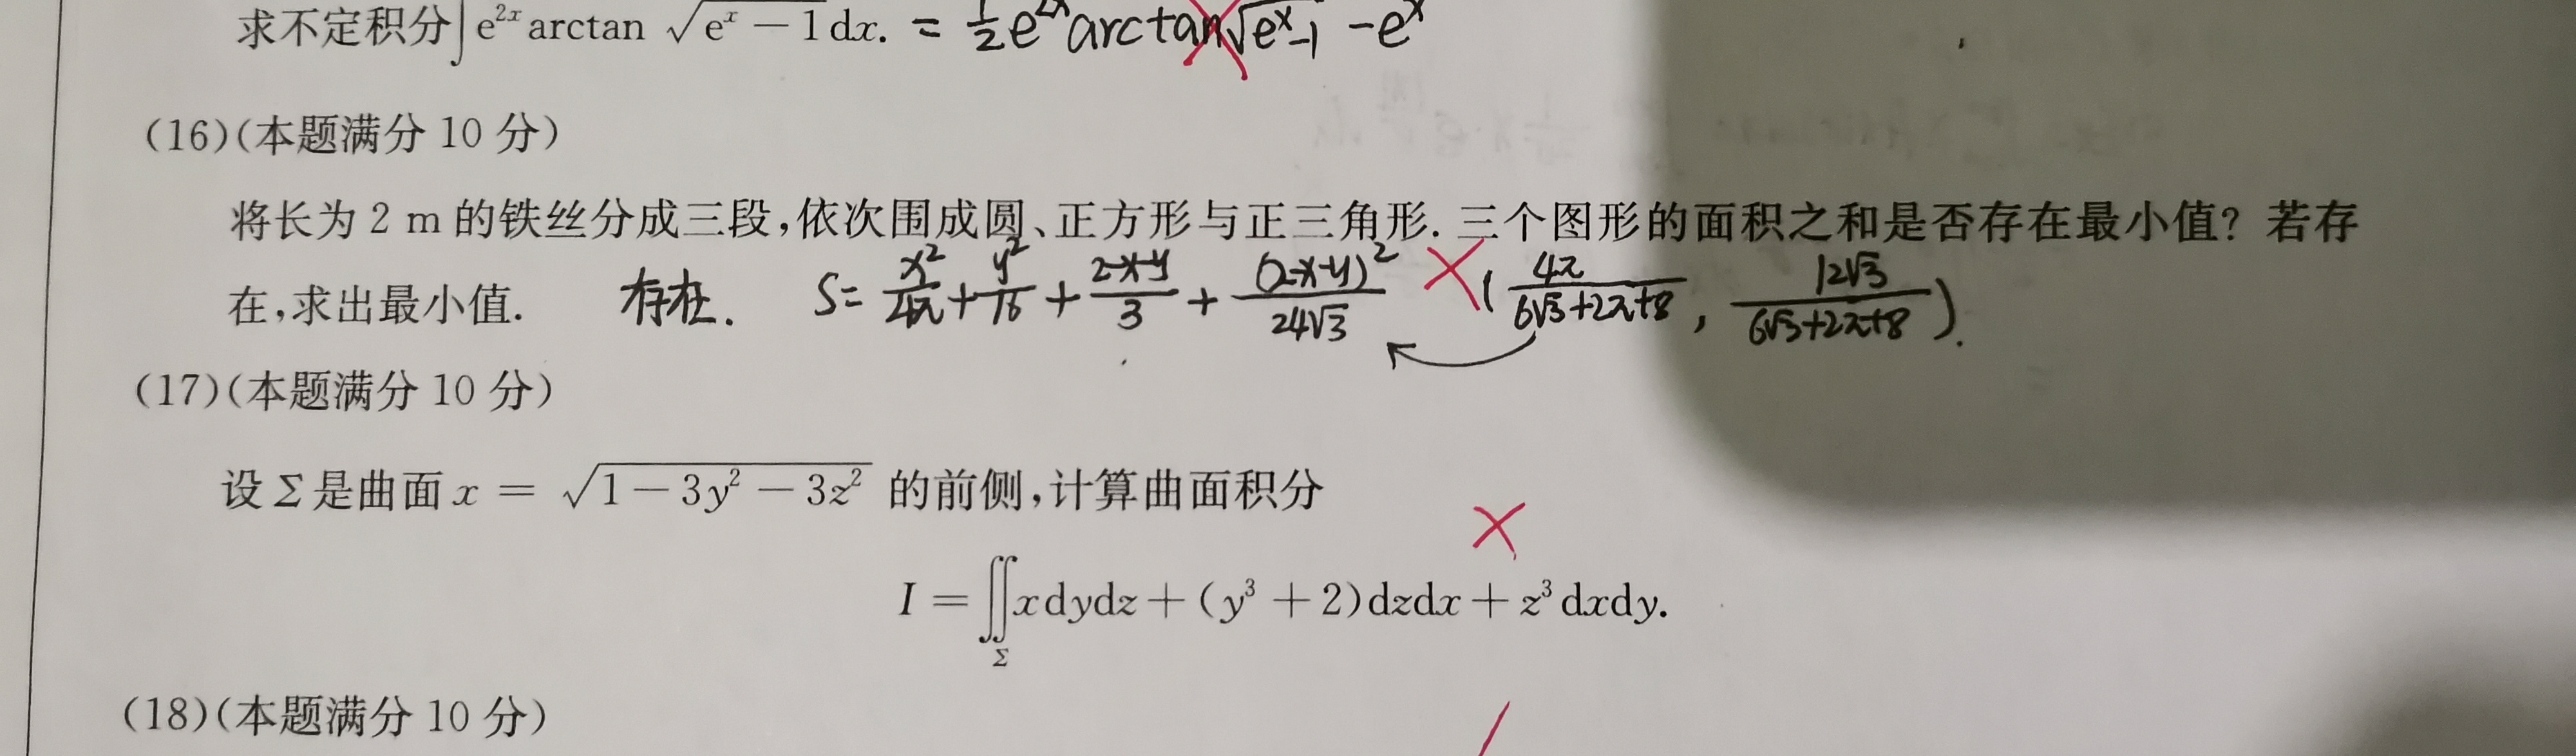 求不定积分∫e²ˣ arctan √(eˣ − 1) dx. = ½e²ˣ arctan√(eˣ−1) − eˣ
(16)(本题满分 10 分)
将长为 2 m 的铁丝分成三段,依次围成圆、正方形与正三角形. 三个图形的面积之和是否存在最小值? 若存
在,求出最小值. 存在. S= x²/4π + y²/16 + (2-x-y)/3 + (2-x-y)²/24√3 (4π/(6√3+2π+8), 12√3/(6√3+2π+8)).
(17)(本题满分 10 分)
设 Σ 是曲面 x = √(1 − 3y² − 3z²) 的前侧,计算曲面积分
I = ∬_Σ xdydz + (y³ + 2)dzdx + z³dxdy.
(18)(本题满分 10 分)